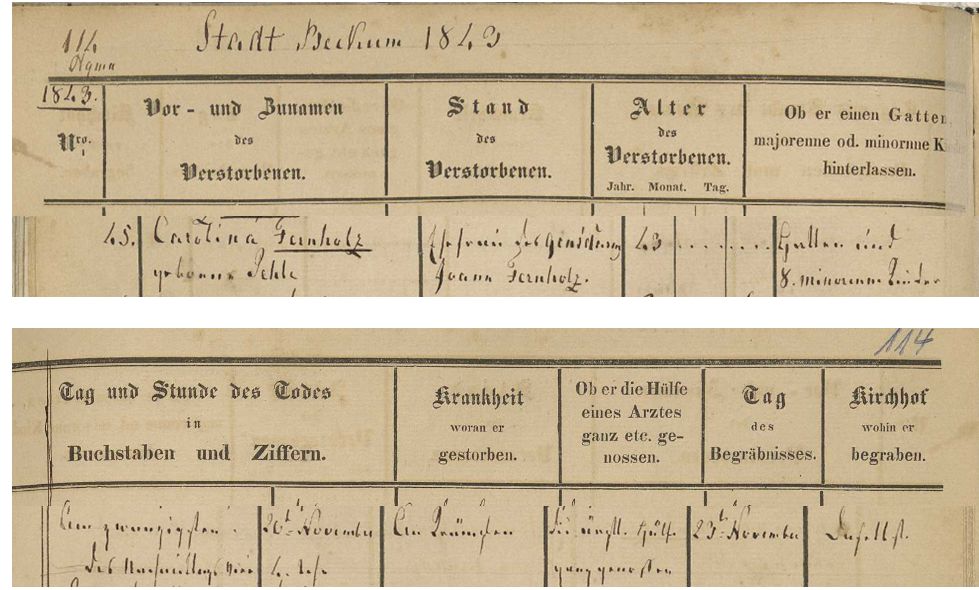 114
Stadt Beckum 1843
1843.
Nro.
Vor- und Zunamen
des
Verstorbenen.
Stand
des
Verstorbenen.
Alter
des
Verstorbenen.
Jahr. Monat. Tag.
Ob er einen Gatten
majorenne od. minornne K
hinterlassen.
45. Carolina Fernholz
geborne
Ehefrau des
Joann Fernholz.
43
Gatten und
8. minorenne Kinder
114
Tag und Stunde des Todes
in
Buchstaben und Ziffern.
Krankheit
woran er
gestorben.
Ob er die Hülfe
eines Arztes
ganz etc. ge-
nossen.
Tag
des
Begräbnisses.
Kirchhof
wohin er
begraben.
Am zwanzigsten
des Nachmittags vier
20t November
4. Uhr
An Krämpfen
die ärztl. Hülfe
ganz genossen
23t November
Daselbst.